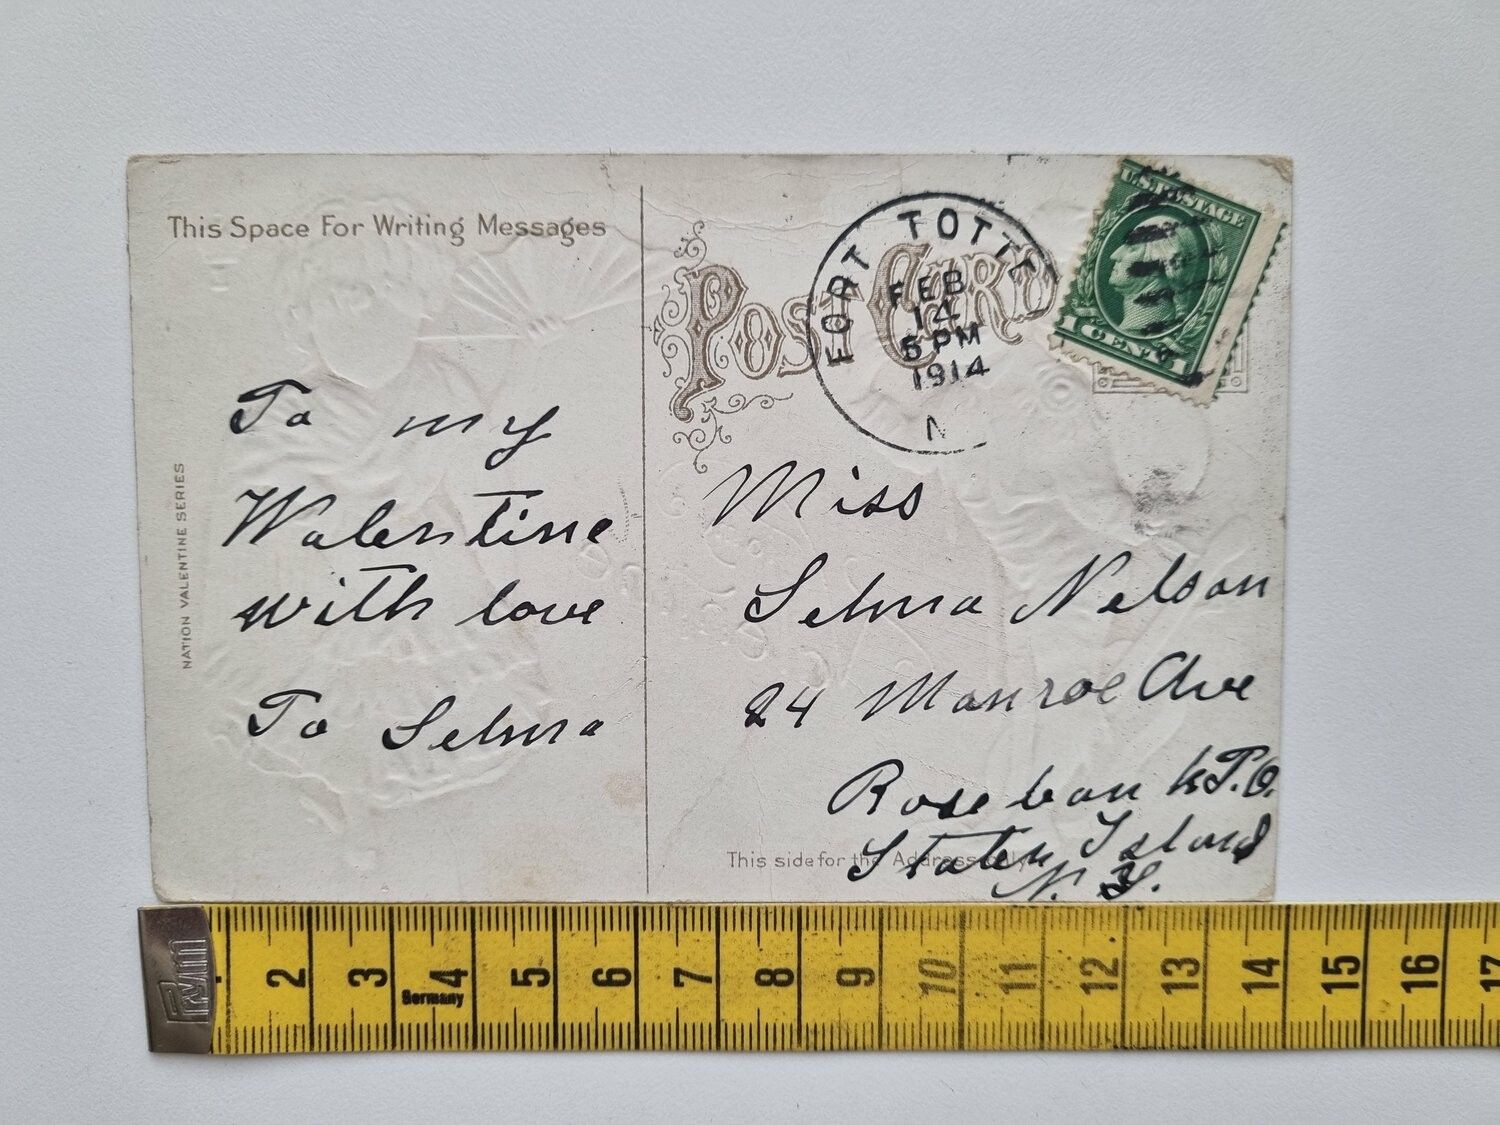 This Space For Writing Messages
NATION VALENTINE SERIES
To my
Valentine
with love
To Selma
POST CARD
FORT TOTTE
FEB
14
5 PM
1914
N
U.S. POSTAGE
1 CENT 1
Miss
Selma Nelson
24 Monroe Ave
Rosebank P.O.
Staten Island
N. Y.
This side for the Address only
2 3 4 5 6 7 8 9 10 11 12 13 14 15 16 17
Germany